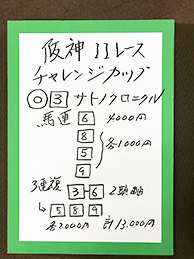 阪神 11レース
チャレンジカップ
◎ 3 サトノクロニクル
馬連 6 4000円
8
5 各1000円
9
3連複 3-6 2頭軸
→ 5 8 9
各3000円 計13.000円